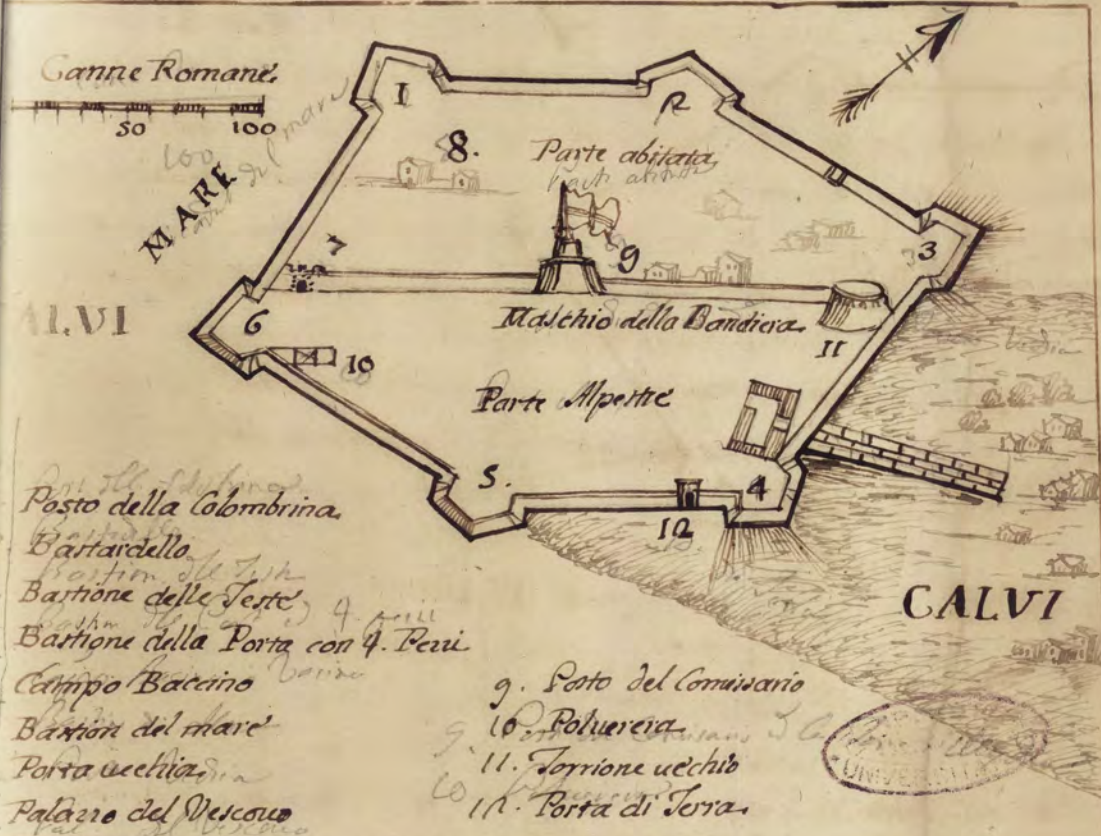 Canne Romane
50 100
100
MARE
1
2
8.
Parte abitata
3
7
9
Maschio della Bandiera
6
ALVI
10
11
Parte Alpestre
5.
4
12
CALVI
Posto della Colombrina
Bastardello
Bastione delle Teste
Bastione della Porta con 4. Pezzi
Campo Baccino
Bastion del mare
Porta uechia
Palazzo del Vescouo
9. Posto del Comissario
10. Poluerera
11. Torrione uechio
12. Porta di Terra